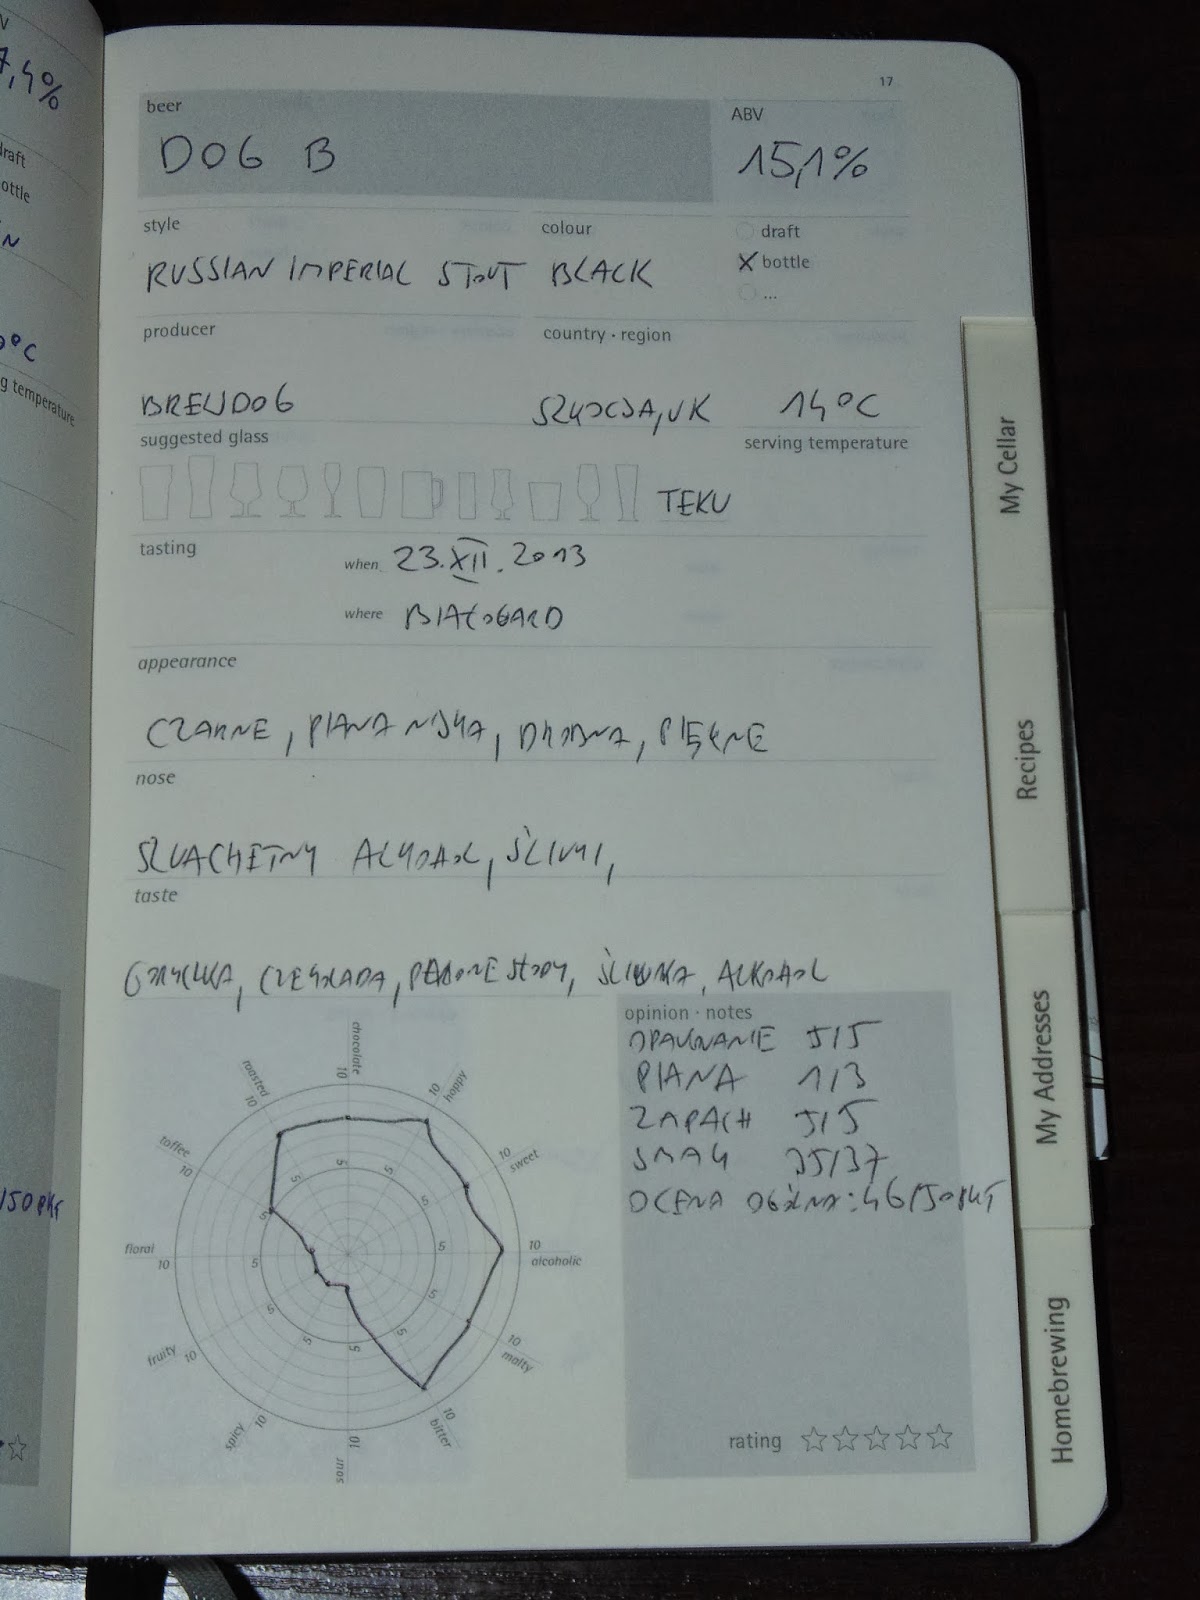 17
beer
ABV
DOG B
15,1%
style
colour
draft
RUSSIAN IMPERIAL STOUT
BLACK
X bottle
...
producer
country · region
BREWDOG
SZKOCJA, UK
14°C
suggested glass
serving temperature
TEKU
tasting
when 23.XII.2013
where BIAŁOGARD
appearance
CZARNE, PIANA NISKA, DROBNA, PIĘKNE
nose
SZLACHETNY ALKOHOL, ŚLIWKI,
taste
GORYCZKA, CZEKOLADA, PALONE SŁODY, ŚLIWKA, ALKOHOL
opinion · notes
OPAKOWANIE 5/5
PIANA 1/3
ZAPACH 5/5
SMAK 35/37
OCENA OGÓLNA: 46/50 PKT
chocolate 10 5
hoppy 10 5
sweet 10 5
alcoholic 10 5
malty 10 5
bitter 10 5
sour 10 5
spicy 10 5
fruity 10 5
floral 10 5
toffee 10 5
roasted 10 5
rating
My Cellar
Recipes
My Addresses
Homebrewing
7,4%
draft
ottle
N
0°C
g temperature
/50 PKT